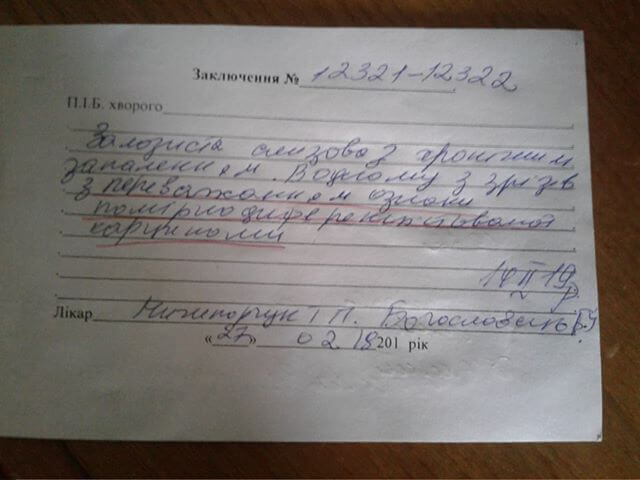 Заключення № 12321-12322
П.І.Б. хворого
Залозиста слизова з хронічним
запаленням. В одному з зрізів
з переважанням ознаки
помірнодиференційованої
карциноми
14 ІІ 19 р
Лікар Ничипорчук Т П. Богословець
«27» 02 18 201 рік